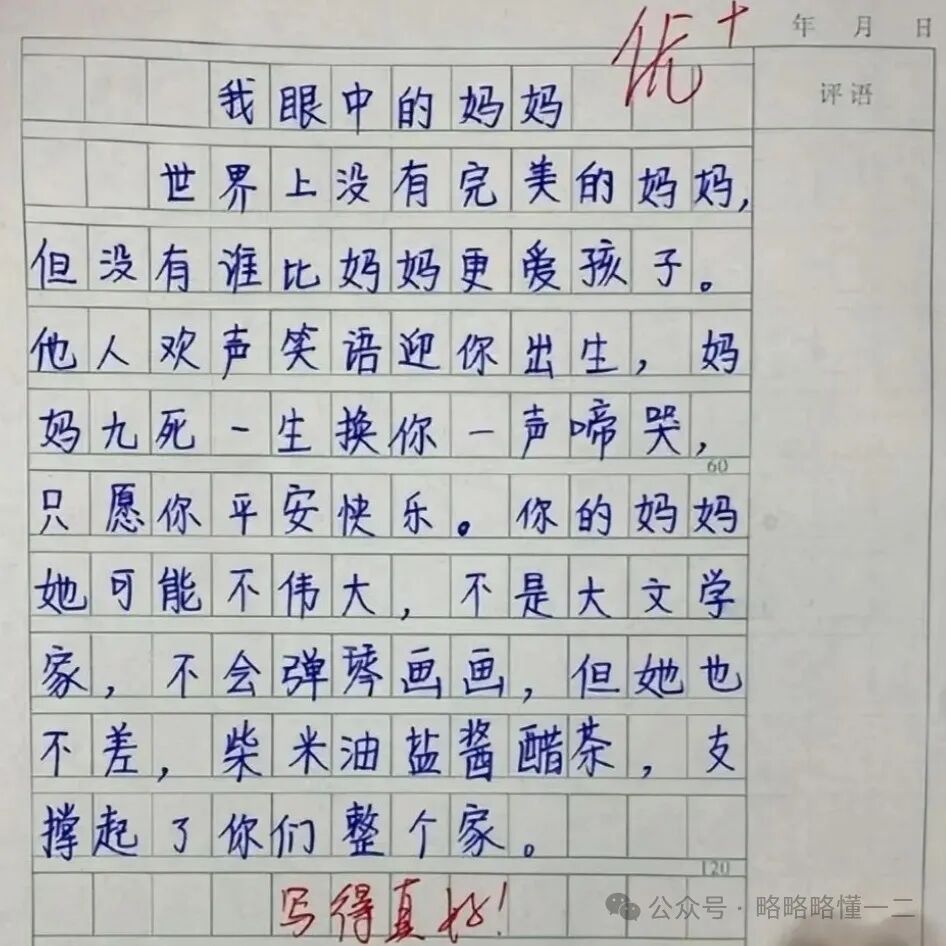 优+
年 月 日
评语
我眼中的妈妈
世界上没有完美的妈妈,
但没有谁比妈妈更爱孩子。
他人欢声笑语迎你出生,妈
妈九死一生换你一声啼哭,
60
只愿你平安快乐。你的妈妈
她可能不伟大,不是大文学
家,不会弹琴画画,但她也
不差,柴米油盐酱醋茶,支
撑起了你们整个家。
120
写得真好!
公众号·略略略懂一二